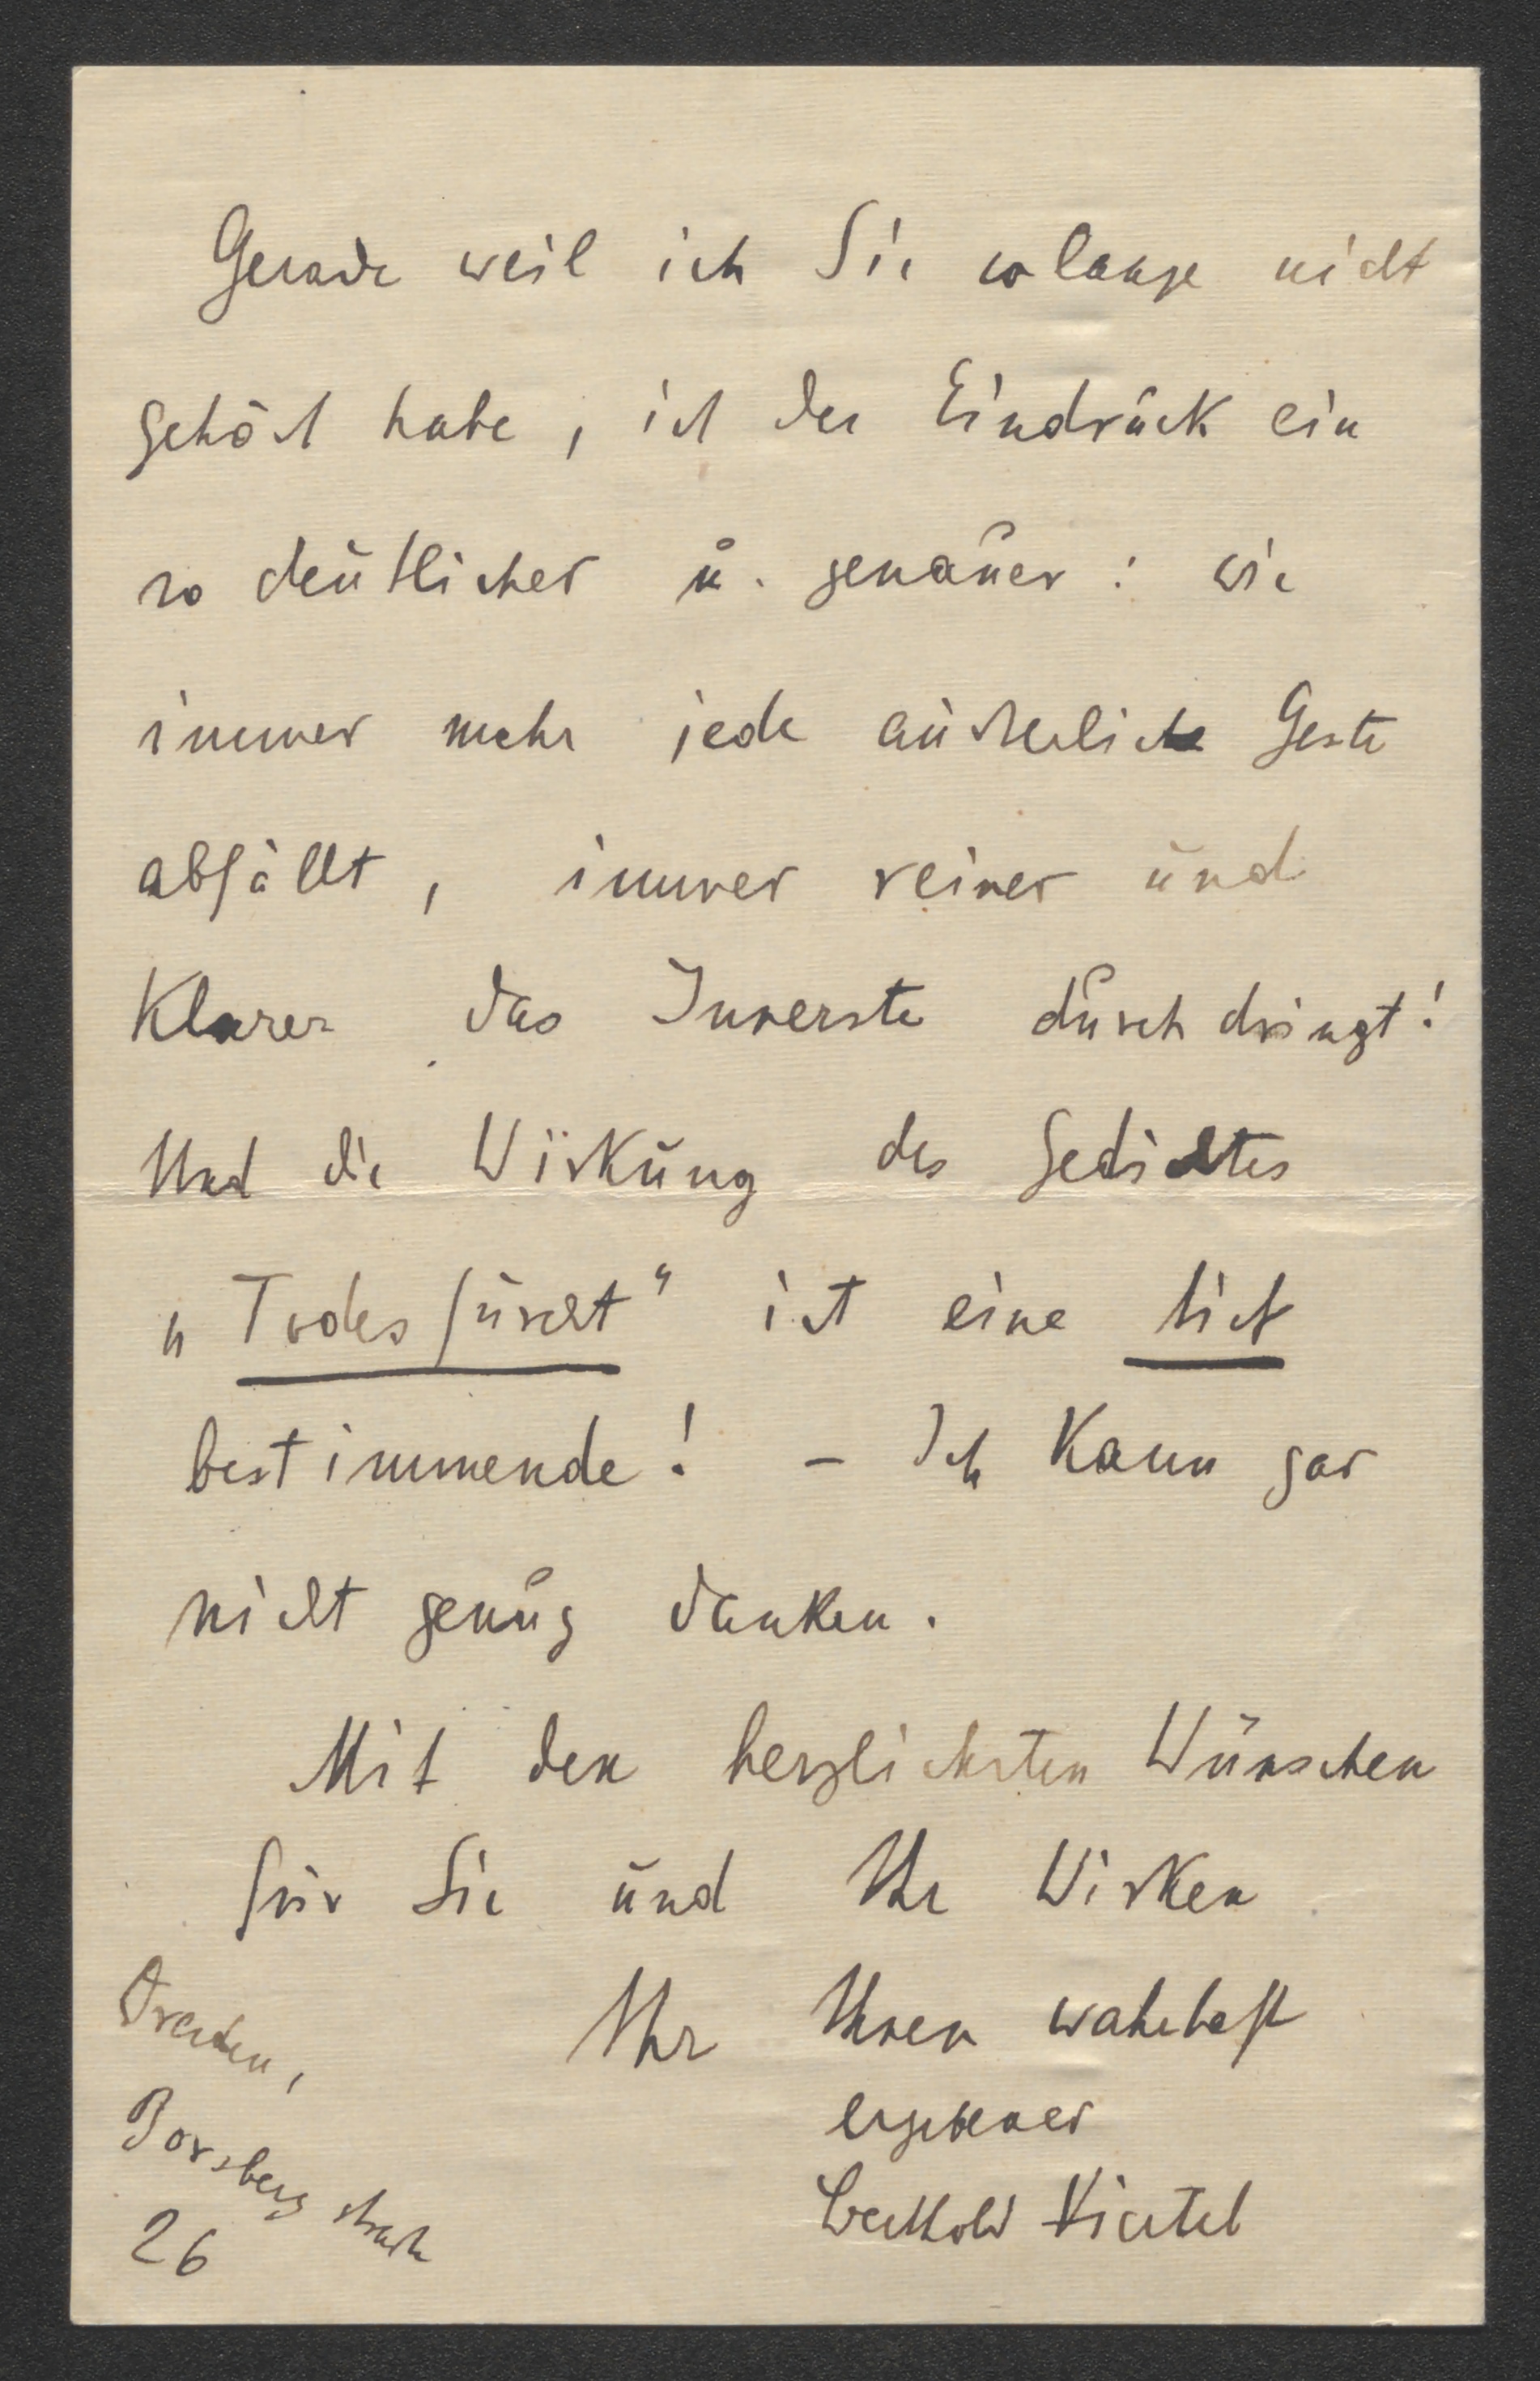 Gerade weil ich Sie so lange nicht
gehört habe, ist der Eindruck ein
so deutlicher u. genauer: wie
immer mehr jede äußerliche Geste
abfällt, immer reiner und
klarer das Innerste durchdringt!
Und die Wirkung des Gedichtes
„Todesfurcht“ ist eine tief
bestimmende! – Ich kann gar
nicht genug danken.
Mit den herzlichsten Wünschen
für Sie und Ihr Wirken
Ihr Ihnen wahrhaft
ergebener
Berthold Viertel
Dresden,
Borsbergstraße
26